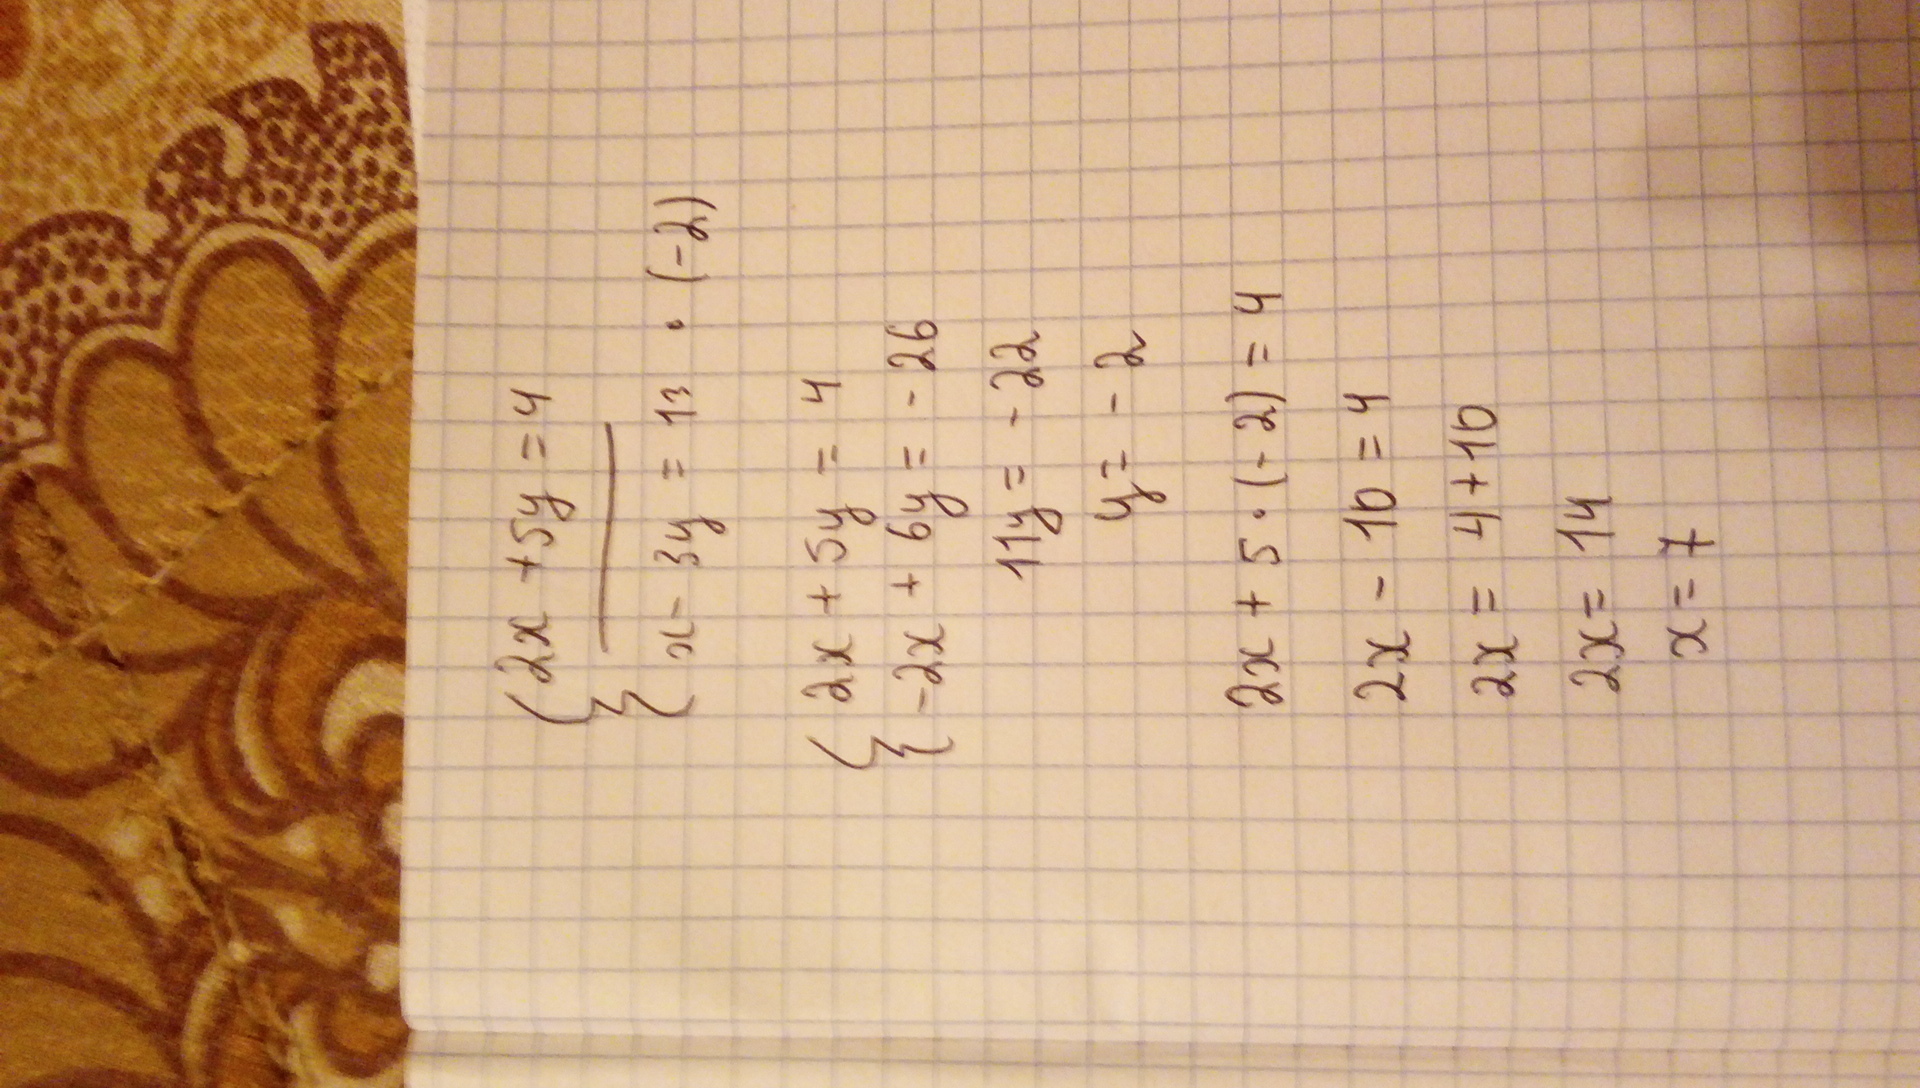 2x + 5y = 4
x - 3y = 13 · (-2)
2x + 5y = 4
-2x + 6y = - 26
11y = - 22
y = - 2
2x + 5 · (- 2) = 4
2x - 10 = 4
2x = 4 + 10
2x = 14
x = 7